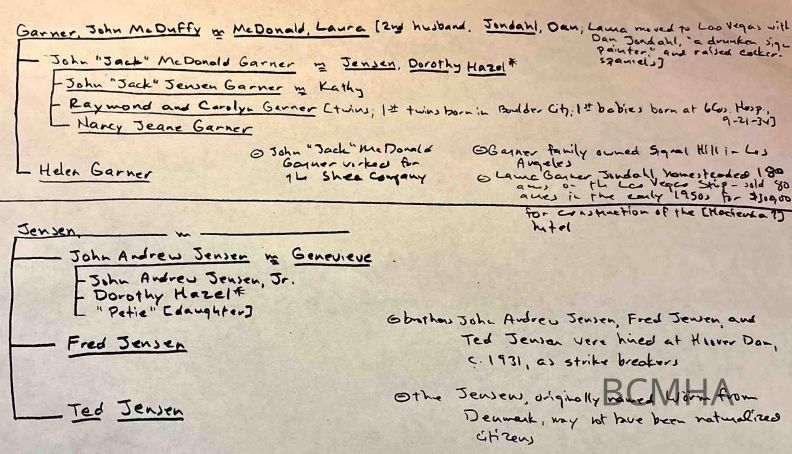 Garner, John McDuffy m McDonald, Laura [2nd husband, Jondahl, Dan; Laura moved to Las Vegas with
Dan Jondahl, "a drunken sign
painter" and raised cocker-
spaniels]
John "Jack" McDonald Garner m Jensen, Dorothy Hazel*
John "Jack" Jensen Garner m Kathy
Raymond and Carolyn Garner [twins; 1st twins born in Boulder City, 1st babies born at 6 Cos. Hosp.,
9-21-34]
Nancy Jeane Garner
Helen Garner
John "Jack" McDonald
Garner worked for
the Shea Company
Garner family owned Signal Hill in Los
Angeles
Laura Garner Jondahl homesteaded 180
acres on the Las Vegas Strip - sold 80
acres in the early 1950s for
for construction of the [Hacienda?]
hotel
Jensen, m
John Andrew Jensen m Genevieve
John Andrew Jensen, Jr.
Dorothy Hazel*
"Petie" [daughter]
Fred Jensen
Ted Jensen
brothers John Andrew Jensen, Fred Jensen, and
Ted Jensen were hired at Hoover Dam,
c. 1931, as strike breakers
the Jensens, originally named Worm from
Denmark, may not have been naturalized
citizens
BCMHA